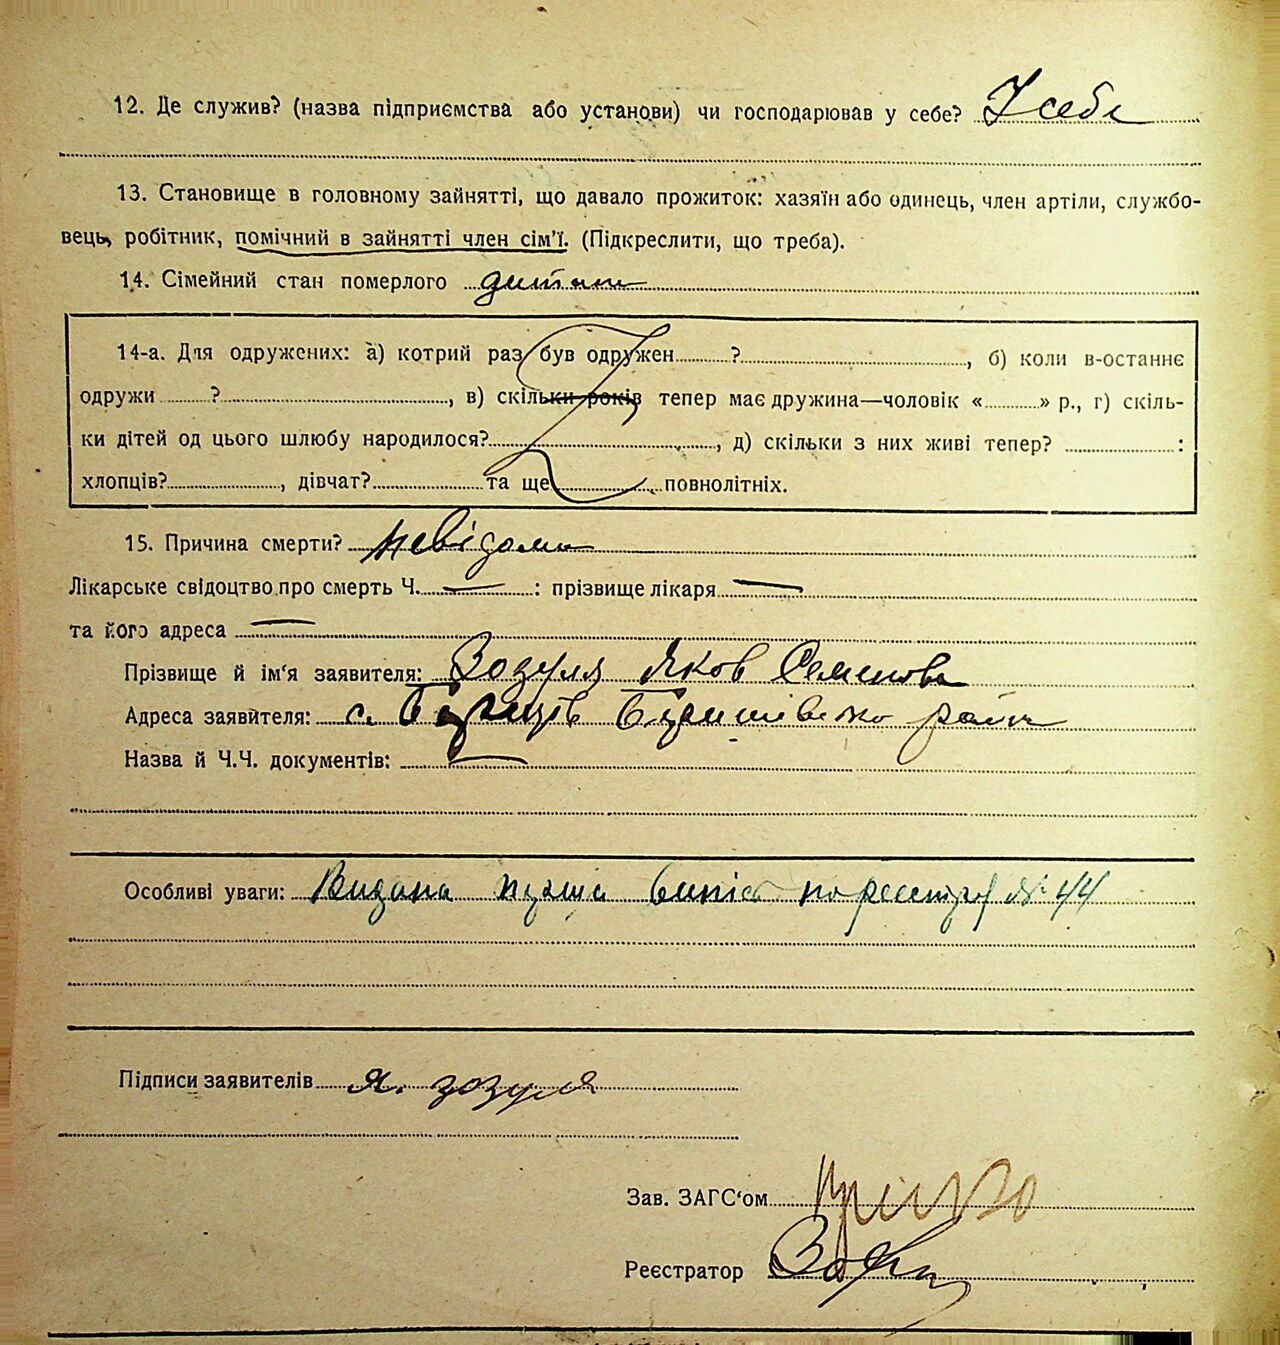 12. Де служив? (назва підприємства або установи) чи господарював у себе? У себе
13. Становище в головному зайнятті, що давало прожиток: хазяїн або одинець, член артіли, службо-
вець, робітник, помічний в зайнятті член сім'ї. (Підкреслити, що треба).
14. Сімейний стан померлого дитина
14-а. Для одружених: а) котрий раз був одружен ? , б) коли в-останнє
одружи ? , в) скільки років тепер має дружина—чоловік « » р., г) скіль-
ки дітей од цього шлюбу народилося? , д) скільки з них живі тепер? :
хлопців? , дівчат? та ще повнолітніх.
15. Причина смерти? невідома
Лікарське свідоцтво про смерть Ч. — : прізвище лікаря —
та його адреса —
Прізвище й ім'я заявителя: Зозуля Яков Семенов
Адреса заявителя: с. район
Назва й Ч.Ч. документів: —
Особливі уваги: Видана № 44
Підписи заявителів Я. Зозуля
Зав. ЗАГС'ом
Реєстратор